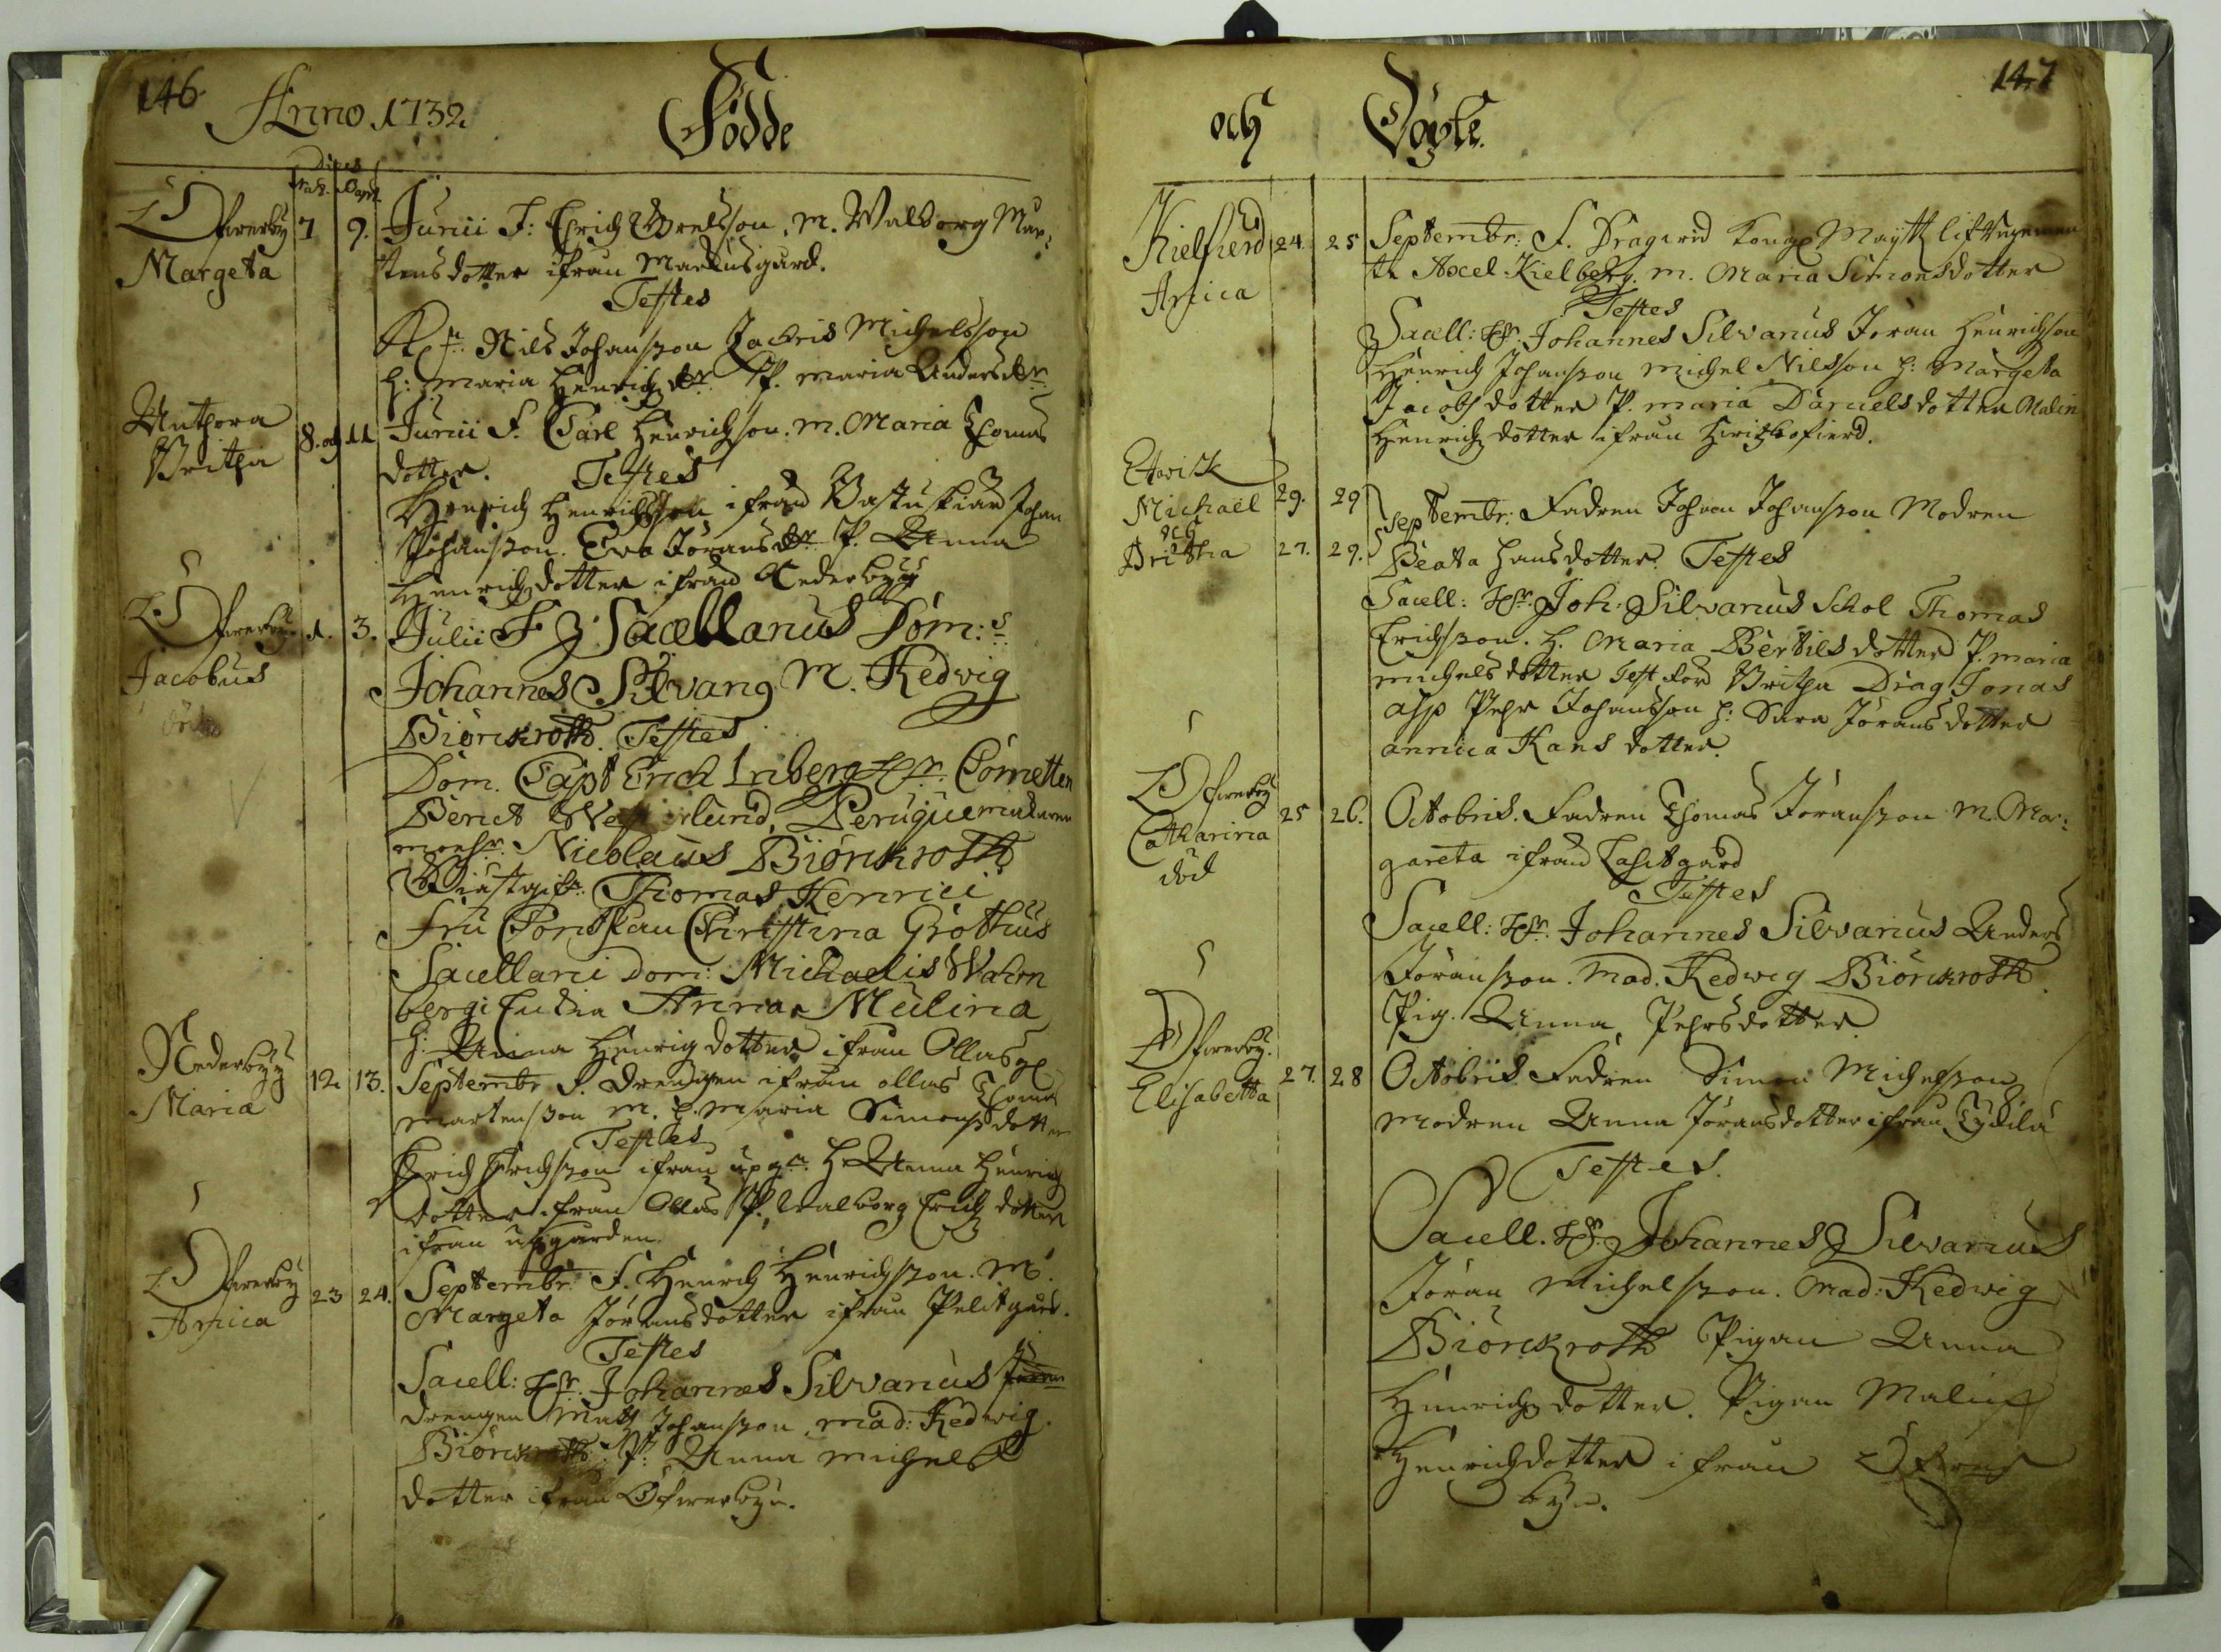 146
Anno 1732
Födde
Dies
Nat. Bapt.
Öfwerby
Margeta
7
9.
Junii F: Erich M. Walborg Mar-
tens dotter ifrån Markusgård.
Testes
Nils Johansson Zachris Michelsson
h: Maria Henrichs dr P. Maria Anders dr
Britha
8. och 11
Junii F. Carl Henrichson. M. Maria Thomas
dotter. Testes
Henrich Henrichsson ifrån Johan
Johansson. Eva Jöransdr P. Anna
Henrichsdotter ifrån Nederbyy
Öfwerby
Jacobus
död
1.
3.
Julii F Sacellanus Dom:s
Johannes Silvanus M. Hedwig
Biörckroth. Testes
Dom. Capt Erich Inberg Hr. Cornetten
Bericht Westerlund, Peruquemakaren
monsr. Nicolaus Biörckroth
Thomas Henrici
Fru Christina Grothus
Sacellani Dom: Michaelis Wahn
bergi Enkia Anna Mulina
h. Anna Henrigdotter ifrån Ollas
Nederbyy
Maria
12.
13.
Septembr F. Drengen ifrån ollas Thomas
Martensson M. h. Maria Simonsdotter
Testes
Erich Erichsson ifrån h Anna Henrich
dotter ifrån Ollas P. Walborg Erichs dotter
ifrån upgården
Öfwerby
Anna
23
24.
Septembr: F. Henrich Henrichsson. M.
Margeta Jöransdotter ifrån Pelitgård.
Testes
Sacell: Hr. Johannes Silvanus
drengen Matz Johansson, Mad: Hedwig
Biörckroth. P: Anna Michels
dotter ifrån Öfwerbyn.
och
Döpte.
147
Kielfierd
Anna
24.
25
Septembr: F. Dragied Kongl Maytz lif
Axel Kielberg. M. Maria Simonsdotter
Testes
Sacell: Hr. Johannes Silvanus Jöran Henrichson
Henrich Johansson Michel Nilsson h: Margeta
Jacobsdotter P. Maria Danielsdotter Malin
Henrichsdotter ifrån
Michaël
och
Britha
29.
29
27.
29.
Septembr: Fadren Johan Johansson Modren
Beata Hansdotter. Testes
Sacell: Hr. Joh: Silvanus Schol Thomas
Erichsson. H. Maria Bertilsdotter P. Maria
Michelsdotter Test för Britha Drag Jonas
Asp Pehr Johansson h: Sara Jöransdotter
annica Hans dotter.
Öfwerby
Catharina
död
25
26.
Octobris. Fadren Thomas Jöransson M. Mar-
gareta ifrån
Testes
Sacell: Hr. Johannes Silvanus Anders
Jöransson. Mad. Hedwig Biörckroth
Pig. Anna Pehrsdotter
Öfwerby.
Elisabetta
27.
28
Octobris Fadren Simon Michelsson
Modren Anna Jöransdotter ifrån
Testes.
Sacell. Hr. Johannes Silvanus
Jöran Michelsson. Mad: Hedwig
Biörckroth Pigan Anna
Henrichsdotter. Pigan Malin
Henrichdotter ifrån Öfwer
byn.